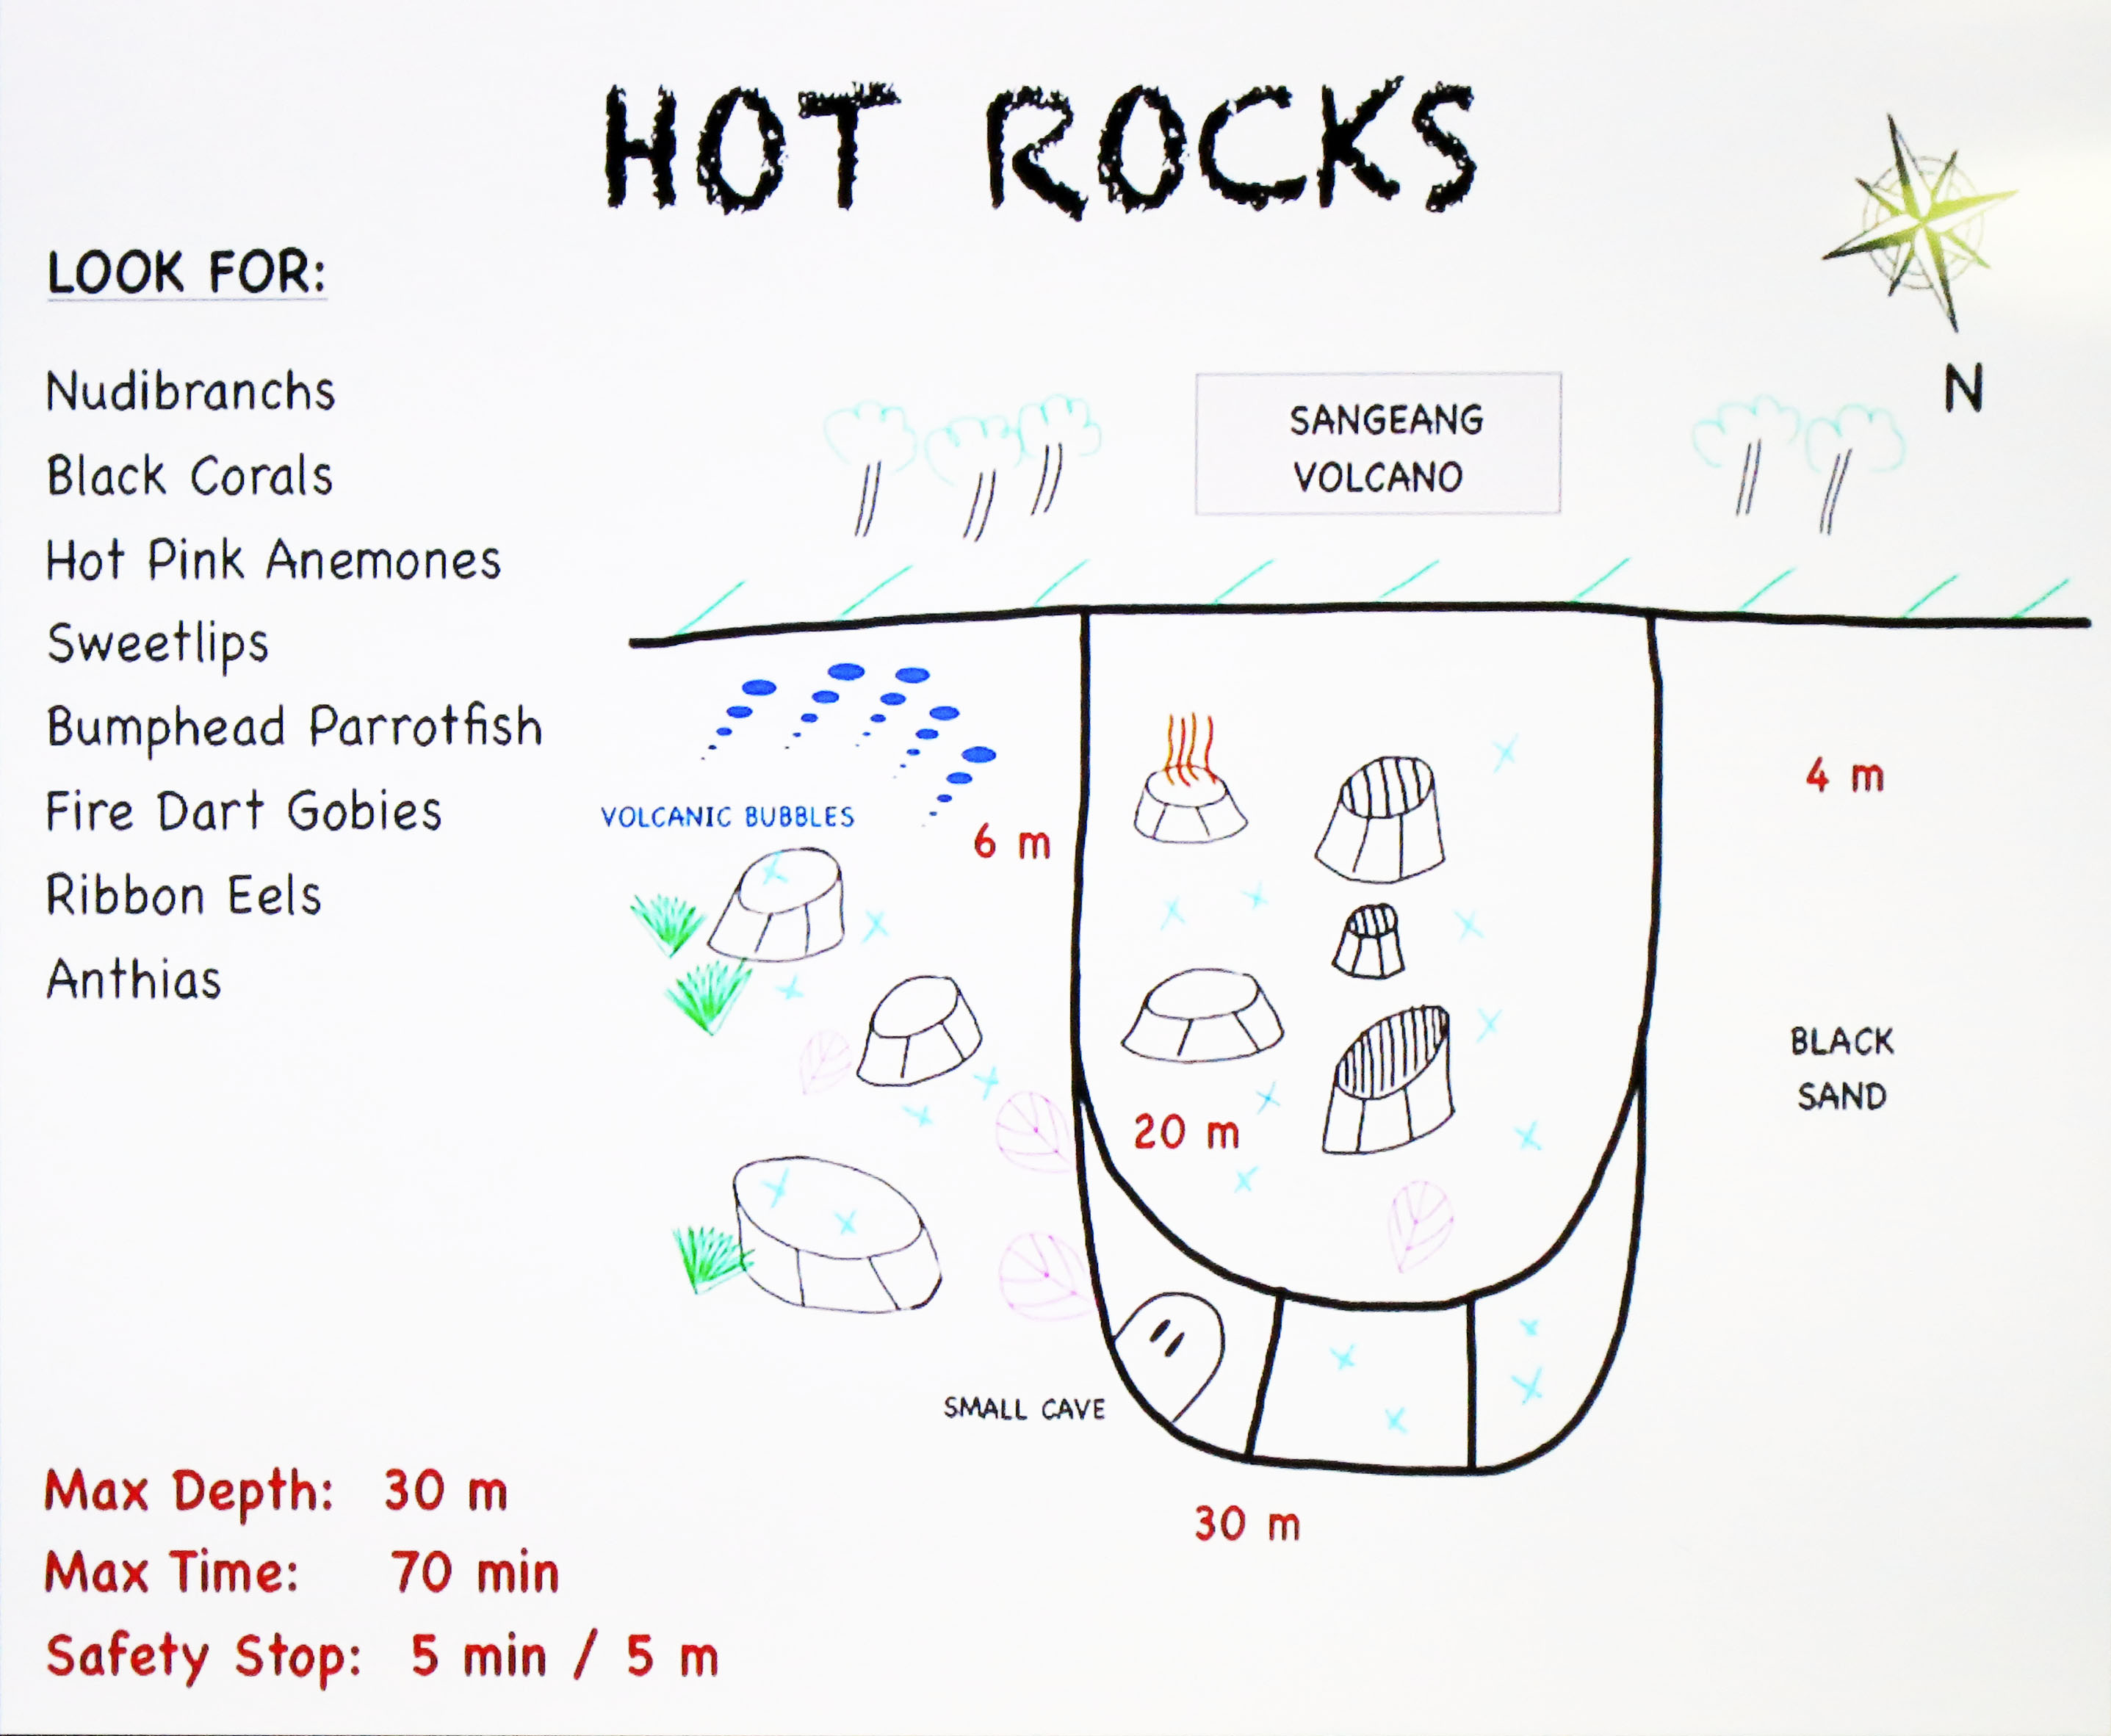 HOT ROCKS
LOOK FOR:
Nudibranchs
Black Corals
Hot Pink Anemones
Sweetlips
Bumphead Parrotfish
Fire Dart Gobies
Ribbon Eels
Anthias
N
SANGEANG
VOLCANO
VOLCANIC BUBBLES
6 m
4 m
20 m
BLACK
SAND
SMALL CAVE
30 m
Max Depth: 30 m
Max Time: 70 min
Safety Stop: 5 min / 5 m